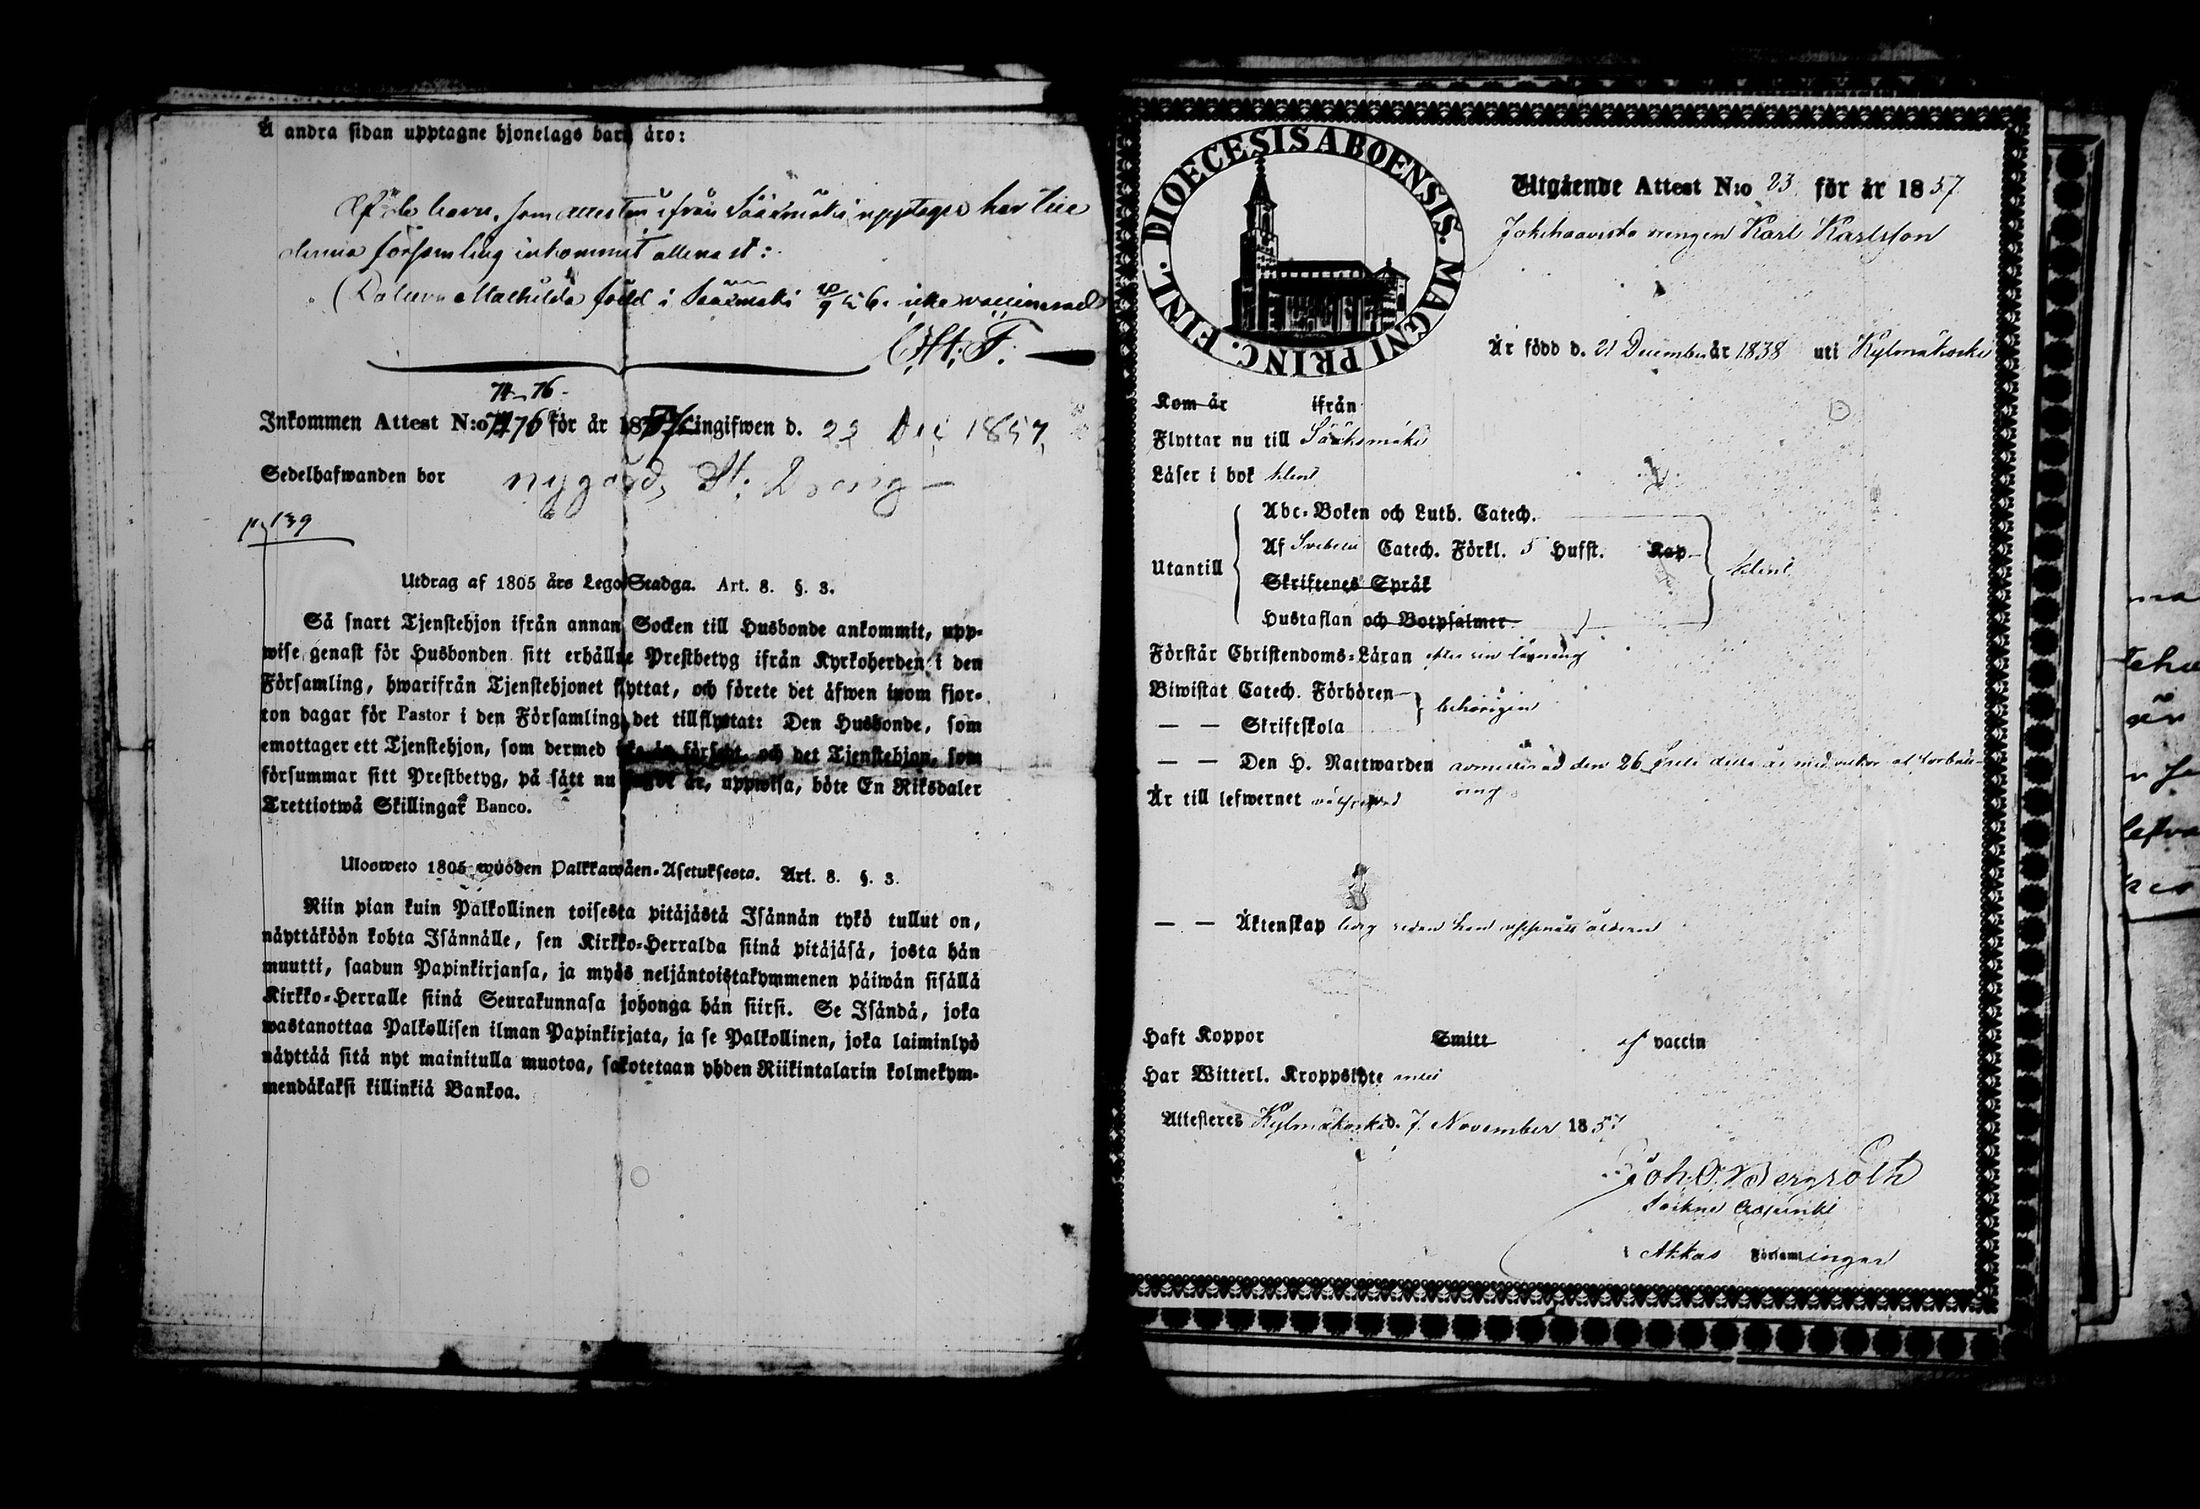 Å andra sidan upptagne hjonelags barn äro:
Af de barn, som attesten ifrån Sääxmäki upptager har till
denna församling inkommit allenast:
Mathilda född i Sääxmäki icke vaccinerad
74-76.
Inkommen Attest N:o 76 för år 18 ingifwen d. 22 Dec 1857
Sedelhafwanden bor nygård, St:
p. 139
Utdrag af 1805 års Lego-Stadga. Art. 8. §. 3.
Så snart Tjenstehjon ifrån annan Socken till Husbonde ankommit, upp-
wise genast för Husbonden sitt erhållne Prestbetyg ifrån Kyrkoherden i den
Församling, hwarifrån Tjenstehjonet flyttat, och förete det äfwen inom fjor-
ton dagar för Pastor i den Församling, det tillflyttat: Den Husbonde, som
emottager ett Tjenstehjon, som dermed icke är försedt, och det Tjenstehjon, som
försummar sitt Prestbetyg, på sätt nu sagdt är, uppwisa, böte En Riksdaler
Trettiotwå Skillingar Banco.
Ulosweto 1805 wuoden Palkkawäen-Asetuksesta. Art. 8. §. 3.
Niin pian kuin Palkollinen toisesta pitäjästä Isännän tykö tullut on,
näyttäköön kohta Isännälle, sen Kirkko-Herralda siinä pitäjäsä, josta hän
muutti, saadun Papinkirjansa, ja myös neljäntoistakymmenen päiwän sisällä
Kirkko-Herralle siinä Seurakunnasa johonga hän siirsi. Se Isändä, joka
wastanottaa Palkollisen ilman Papinkirjata, ja se Palkollinen, joka laiminlyö
näyttää sitä nyt mainitulla muotoa, sakotetaan yhden Riikintalarin kolmekym-
mendäkaksi killinkiä Bankoa.
DIOECESIS ABOENSIS. MAGNI PRINC. FINL.
Utgående Attest N:o 23 för år 1857
Jokihaavisto drengen Karl Karlsson
Är född d. 21 December år 1838 uti Kylmäkoski
Kom år ifrån
Flyttar nu till Sääksmäki
Läser i bok klent
Abc-Boken och Luth. Catech.
Af Svebelii Catech. Förkl. 5 Hufst. Kap
Utantill klent
Skriftenes Språk
Hustaflan och Botpsalmer
Förstår Christendoms-Läran efter sin läsning
Biwistat Catech. Förhören behörigen
— — Skriftskola
— — Den H. Nattwarden admitterad den 26 Juli detta år med vilkor af förbätt-
ring
Är till lefwernet välfrejdad
— — Äktenskap ledig sedan han uppnått åldern
Haft Koppor Smitt af vaccin
Har Witterl. Kroppslyte intet
Attesteres Kylmäkoski d. 7. November 1857
Joh. O. Bergroth
Sockne Adjunkt
i Akkas Församlingar